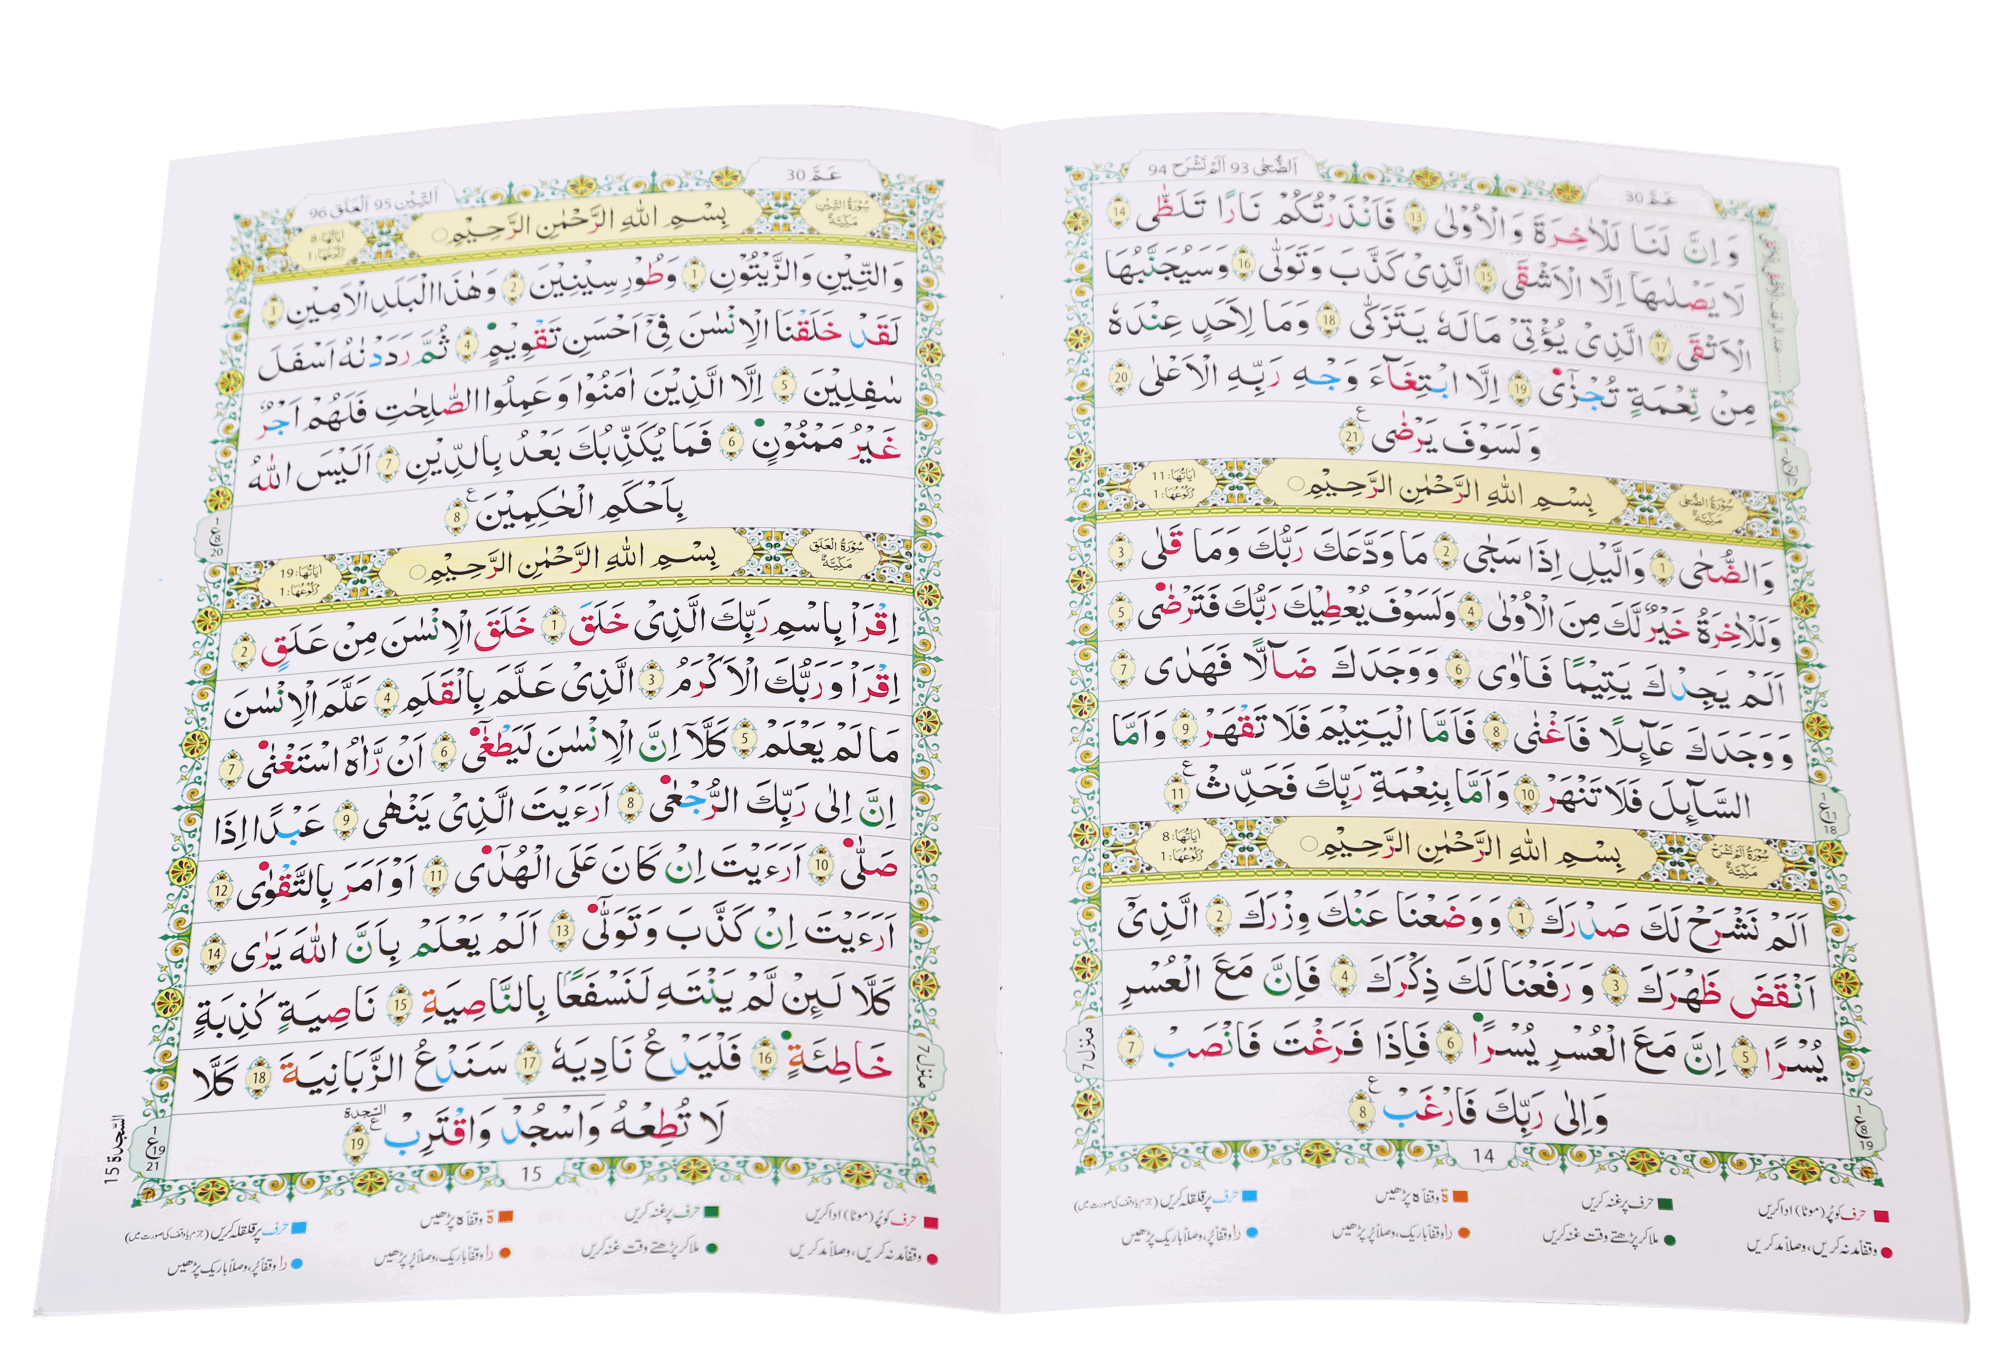 اَلضُّحٰی 93 اَلَمْ نَشْرَح 94
عَمَّ 30
وَ اِنَّ لَنَا لَلْاٰخِرَةَ وَ الْاُوْلٰى 13 فَاَنْذَرْتُكُمْ نَارًا تَلَظّٰى 14
لَا يَصْلٰىهَاۤ اِلَّا الْاَشْقَى 15 الَّذِىْ كَذَّبَ وَ تَوَلّٰى 16 وَ سَيُجَنَّبُهَا
الْاَتْقَى 17 الَّذِىْ يُؤْتِىْ مَالَهٗ يَتَزَكّٰى 18 وَ مَا لِاَحَدٍ عِنْدَهٗ
مِنْ نِّعْمَةٍ تُجْزٰٓى 19 اِلَّا ابْتِغَآءَ وَجْهِ رَبِّهِ الْاَعْلٰى 20
وَ لَسَوْفَ يَرْضٰى 21
سُوْرَةُ الضُّحٰى مَكِّيَّةٌ
بِسْمِ اللّٰهِ الرَّحْمٰنِ الرَّحِيْمِ
اٰيَاتُهَا: 11
رُكُوْعُهَا: 1
وَالضُّحٰى 1 وَالَّيْلِ اِذَا سَجٰى 2 مَا وَدَّعَكَ رَبُّكَ وَمَا قَلٰى 3
وَلَلْاٰخِرَةُ خَيْرٌ لَّكَ مِنَ الْاُوْلٰى 4 وَلَسَوْفَ يُعْطِيْكَ رَبُّكَ فَتَرْضٰى 5
اَلَمْ يَجِدْكَ يَتِيْمًا فَاٰوٰى 6 وَ وَجَدَكَ ضَآلًّا فَهَدٰى 7
وَ وَجَدَكَ عَآئِلًا فَاَغْنٰى 8 فَاَمَّا الْيَتِيْمَ فَلَا تَقْهَرْ 9 وَ اَمَّا
السَّآئِلَ فَلَا تَنْهَرْ 10 وَ اَمَّا بِنِعْمَةِ رَبِّكَ فَحَدِّثْ 11
سُوْرَةُ اَلَمْ نَشْرَحْ مَكِّيَّةٌ
بِسْمِ اللّٰهِ الرَّحْمٰنِ الرَّحِيْمِ
اٰيَاتُهَا: 8
رُكُوْعُهَا: 1
اَلَمْ نَشْرَحْ لَكَ صَدْرَكَ 1 وَ وَضَعْنَا عَنْكَ وِزْرَكَ 2 الَّذِىْۤ
اَنْقَضَ ظَهْرَكَ 3 وَ رَفَعْنَا لَكَ ذِكْرَكَ 4 فَاِنَّ مَعَ الْعُسْرِ
يُسْرًا 5 اِنَّ مَعَ الْعُسْرِ يُسْرًا 6 فَاِذَا فَرَغْتَ فَانْصَبْ 7
وَ اِلٰى رَبِّكَ فَارْغَبْ 8
منزل 7
ع 11 18
ع 8 19
14
حرف کو پُر (موٹا) ادا کریں
حرف پر غنہ کریں
ة وقفاً ہ پڑھیں
حرف پر قلقلہ کریں (جزم یا وقف کی صورت میں)
وقفاً مد نہ کریں، وصلاً مد کریں
ملا کر پڑھتے وقت غنہ کریں
را وقفاً باریک، وصلاً پُر پڑھیں
را وقفاً پُر، وصلاً باریک پڑھیں
اَلتِّیْن 95 اَلْعَلَق 96
عَمَّ 30
سُوْرَةُ التِّيْنِ مَكِّيَّةٌ
بِسْمِ اللّٰهِ الرَّحْمٰنِ الرَّحِيْمِ
اٰيَاتُهَا: 8
رُكُوْعُهَا: 1
وَالتِّيْنِ وَالزَّيْتُوْنِ 1 وَ طُوْرِ سِيْنِيْنَ 2 وَ هٰذَا الْبَلَدِ الْاَمِيْنِ 3
لَقَدْ خَلَقْنَا الْاِنْسٰنَ فِىْۤ اَحْسَنِ تَقْوِيْمٍ 4 ثُمَّ رَدَدْنٰهُ اَسْفَلَ
سٰفِلِيْنَ 5 اِلَّا الَّذِيْنَ اٰمَنُوْا وَ عَمِلُوا الصّٰلِحٰتِ فَلَهُمْ اَجْرٌ
غَيْرُ مَمْنُوْنٍ 6 فَمَا يُكَذِّبُكَ بَعْدُ بِالدِّيْنِ 7 اَلَيْسَ اللّٰهُ
بِاَحْكَمِ الْحٰكِمِيْنَ 8
سُوْرَةُ الْعَلَقِ مَكِّيَّةٌ
بِسْمِ اللّٰهِ الرَّحْمٰنِ الرَّحِيْمِ
اٰيَاتُهَا: 19
رُكُوْعُهَا: 1
اِقْرَاْ بِاسْمِ رَبِّكَ الَّذِىْ خَلَقَ 1 خَلَقَ الْاِنْسٰنَ مِنْ عَلَقٍ 2
اِقْرَاْ وَ رَبُّكَ الْاَكْرَمُ 3 الَّذِىْ عَلَّمَ بِالْقَلَمِ 4 عَلَّمَ الْاِنْسٰنَ
مَا لَمْ يَعْلَمْ 5 كَلَّاۤ اِنَّ الْاِنْسٰنَ لَيَطْغٰٓى 6 اَنْ رَّاٰهُ اسْتَغْنٰى 7
اِنَّ اِلٰى رَبِّكَ الرُّجْعٰى 8 اَرَءَيْتَ الَّذِىْ يَنْهٰى 9 عَبْدًا اِذَا
صَلّٰى 10 اَرَءَيْتَ اِنْ كَانَ عَلَى الْهُدٰٓى 11 اَوْ اَمَرَ بِالتَّقْوٰى 12
اَرَءَيْتَ اِنْ كَذَّبَ وَ تَوَلّٰى 13 اَلَمْ يَعْلَمْ بِاَنَّ اللّٰهَ يَرٰى 14
كَلَّا لَئِنْ لَّمْ يَنْتَهِ لَنَسْفَعًۢا بِالنَّاصِيَةِ 15 نَاصِيَةٍ كٰذِبَةٍ
خَاطِئَةٍ 16 فَلْيَدْعُ نَادِيَهٗ 17 سَنَدْعُ الزَّبَانِيَةَ 18 كَلَّا
لَا تُطِعْهُ وَاسْجُدْ وَاقْتَرِبْ 19 السّجدة
منزل 7
ع 8 20
ع 19 21
السَّجدة 15
15
حرف کو پُر (موٹا) ادا کریں
حرف پر غنہ کریں
ة وقفاً ہ پڑھیں
حرف پر قلقلہ کریں (جزم یا وقف کی صورت میں)
وقفاً مد نہ کریں، وصلاً مد کریں
ملا کر پڑھتے وقت غنہ کریں
را وقفاً باریک، وصلاً پُر پڑھیں
را وقفاً پُر، وصلاً باریک پڑھیں